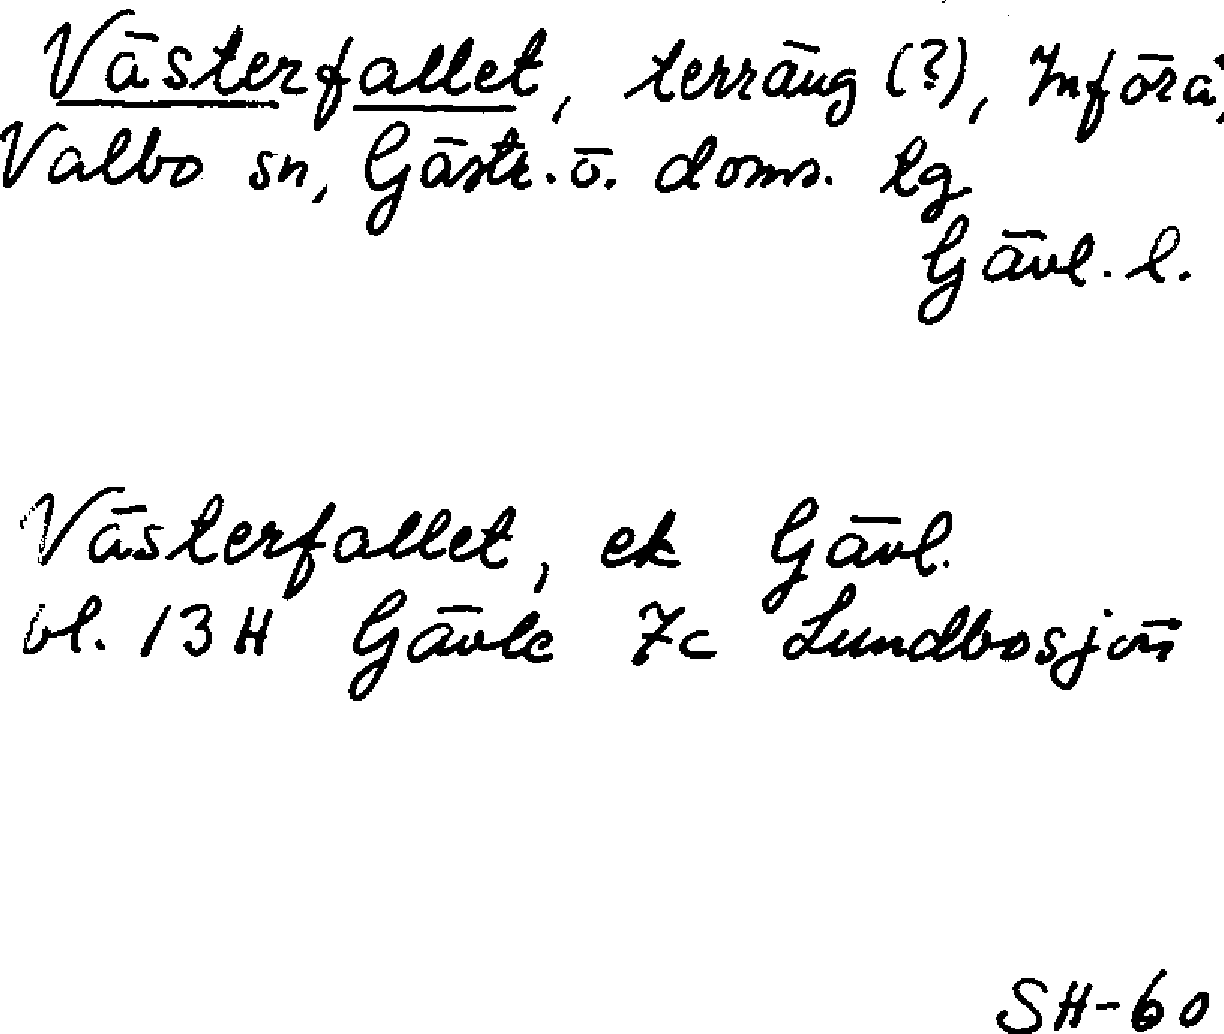 Västerfallet, terräng (?), Införå,
Valbo sn, Gästr. ö. doms. lg
Gävl. l.
Västerfallet, ek Gävl.
bl. 13 H Gävle 7c Lundbosjön
SH-60